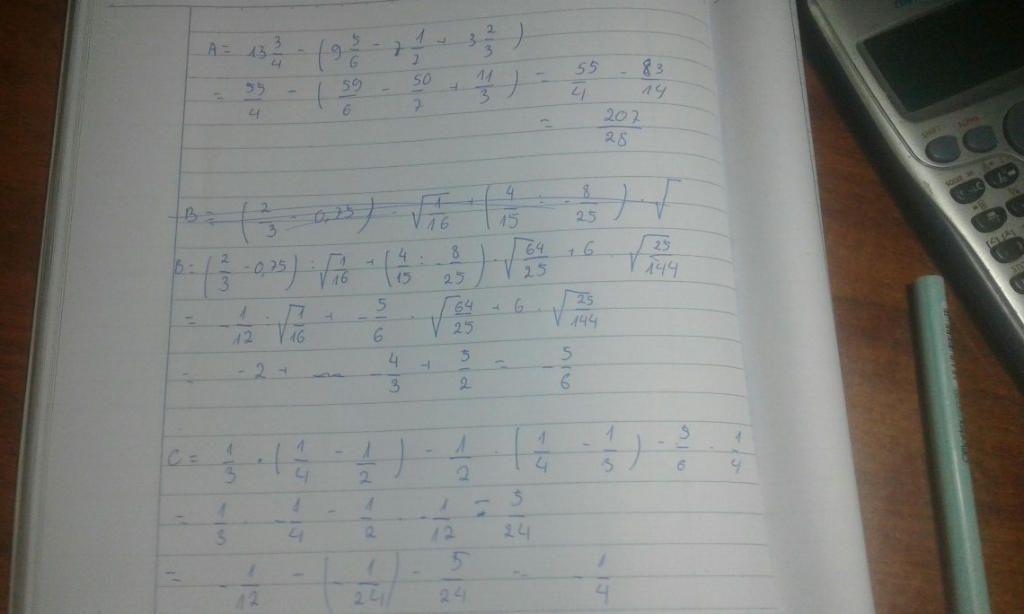 A = 13 3/4 - ( 9 5/6 - 7 1/7 + 3 2/3 )
= 55/4 - ( 59/6 - 50/7 + 11/3 ) = 55/4 - 83/14
= 207/28
B = ( 2/3 - 0,75 ) · √1/16 + ( 4/15 : - 8/25 ) · √
B = ( 2/3 - 0,75 ) : √1/16 + ( 4/15 : - 8/25 ) · √64/25 + 6 · √25/144
= - 1/12 · √1/16 + - 5/6 · √64/25 + 6 · √25/144
= - 2 + - 4/3 + 5/2 = - 5/6
C = 1/3 · ( 1/4 - 1/2 ) - 1/2 · ( 1/4 - 1/3 ) - 5/6 · 1/4
= 1/3 · - 1/4 - 1/2 · - 1/12 - 5/24
= - 1/12 - ( - 1/24 ) - 5/24 = - 1/4
SHIFT ALPHA